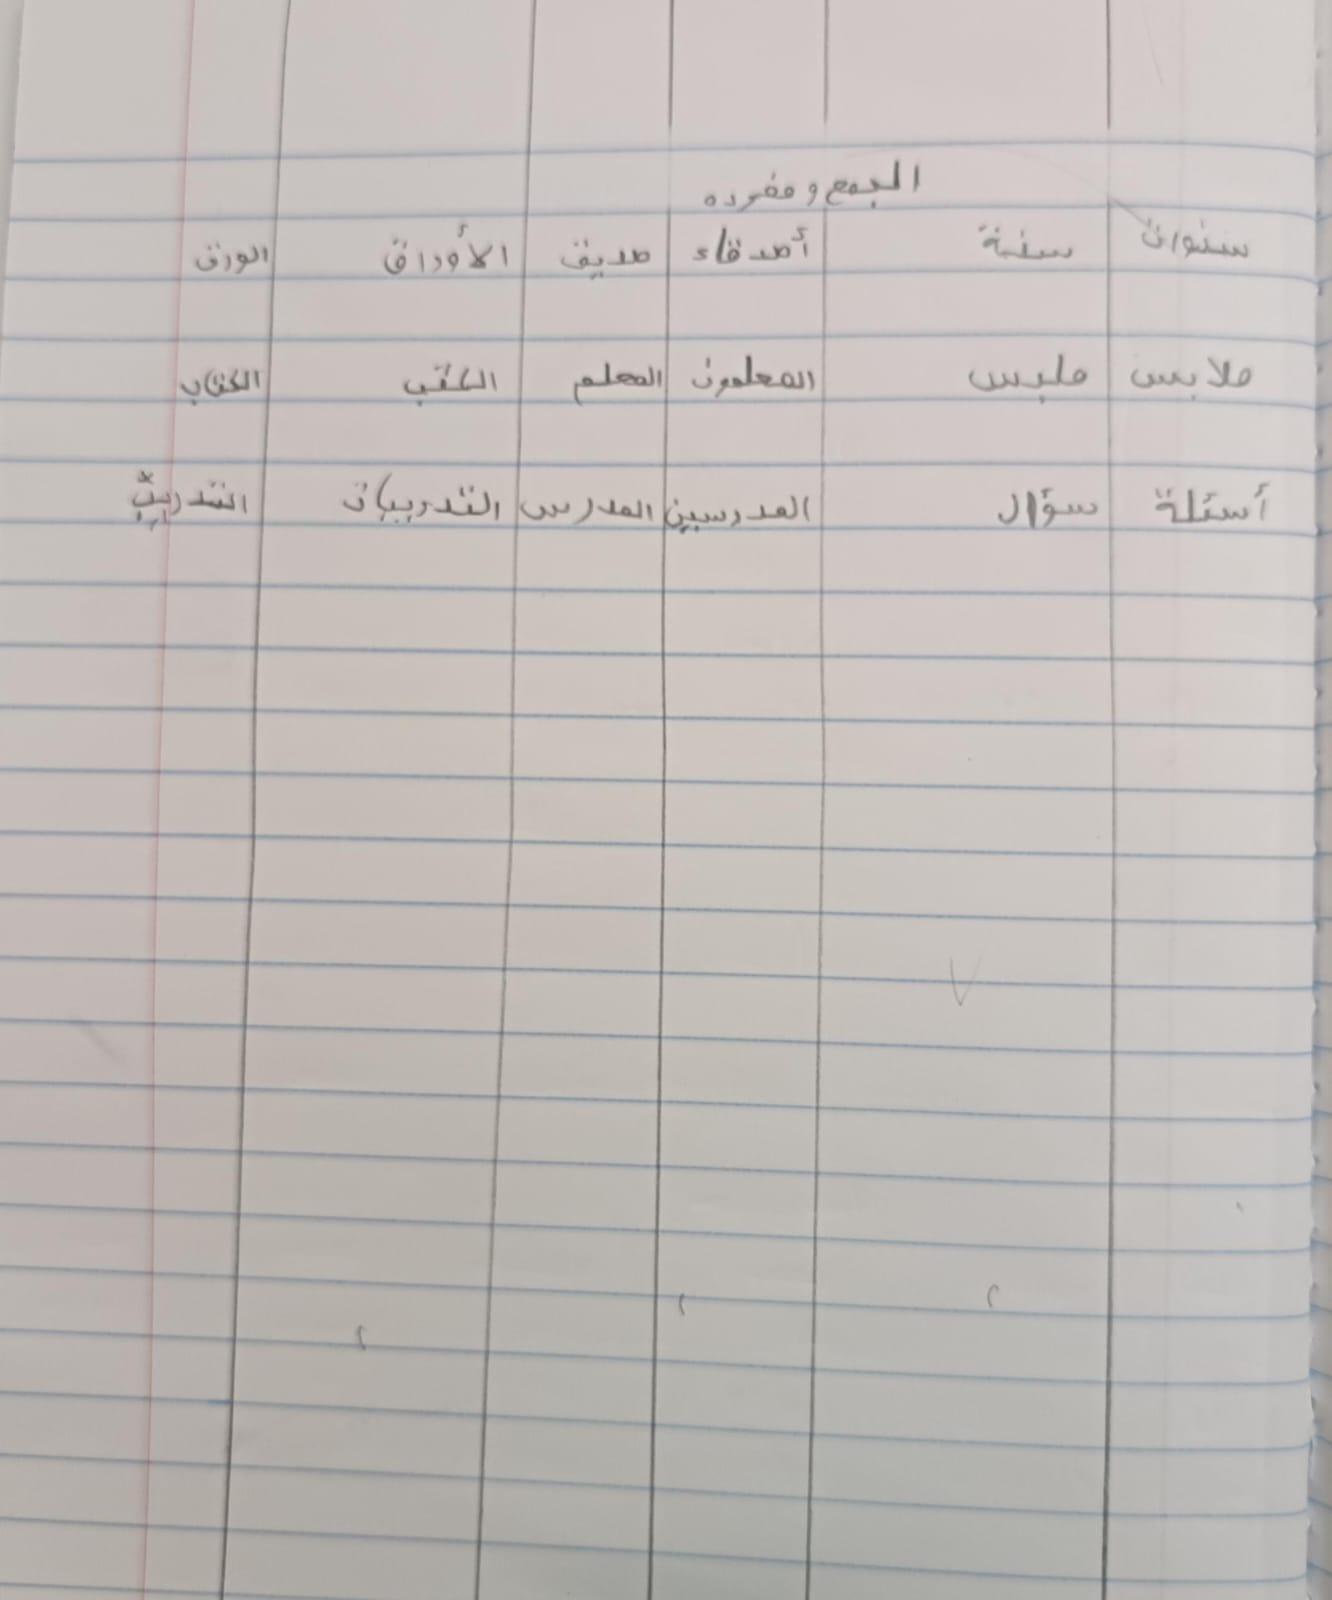 الجمع ومفرده
سنوات سنة أصدقاء صديق الأوراق الورق
ملابس ملبس المعلمون المعلم الكتب الكتاب
أسئلة سؤال المدرسين المدرس التدريبات التدريب